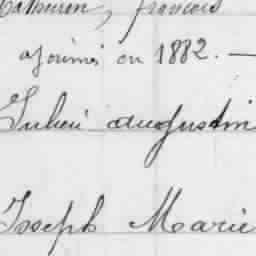 Mathurin, francois
ajourné en 1882. —
Julien augustin
Joseph Marie